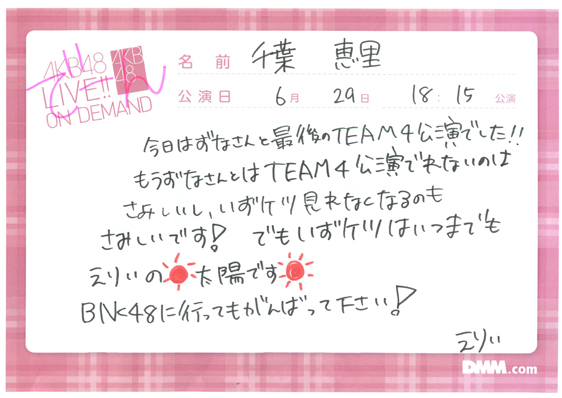 AKB48
LIVE!!
ON DEMAND
AKB
48
でん
名前 千葉 恵里
公演日 6月 29日 18:15 公演
今日はずなさんと最後のTEAM4公演でした!!
もうずなさんとはTEAM4公演でれないのは
さみしいし、いずケツ見れなくなるのも
さみしいです! でもいずケツはいつまでも
えりぃの太陽です
BNK48に行ってもがんばって下さい!
えりぃ
DMM.com